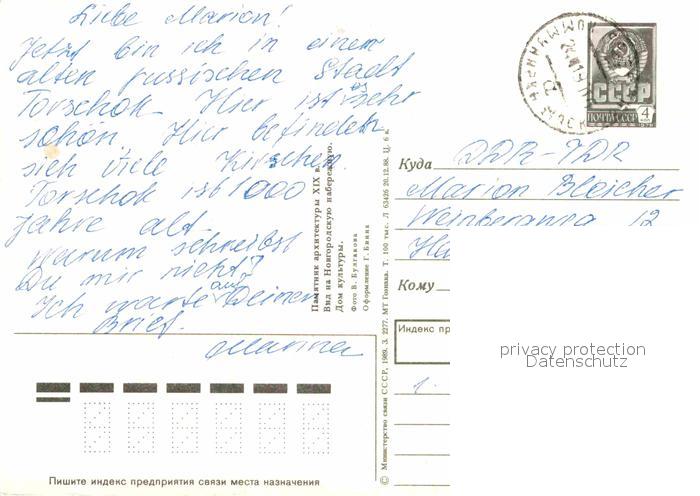 Liebe Marion!
Jetzt bin ich in einem
alten russischen Stadt
Torschok. Hier ist es sehr
schön. Hier befinden
sich viele Kirschen.
Torschok ist 1000
Jahre alt.
Warum schreibst
Du mir nicht?
Ich warte auf Deinen
Brief.
Marina
Памятник архитектуры XIX в.
Вид на Новгородскую набережную.
Дом культуры.
Фото В. Булгакова
Оформление Г. Бяник
© Министерство связи СССР, 1989. З. 2277. МТ Гознака. Т. 100 тыс. Л 03426 20.12.88. Ц. 6 к.
СССР
ПОЧТА СССР
4
Куда DDR-ГДР
Marion Bleicher
12
Кому
Индекс пр
1.
privacy protection
Datenschutz
Пишите индекс предприятия связи места назначения